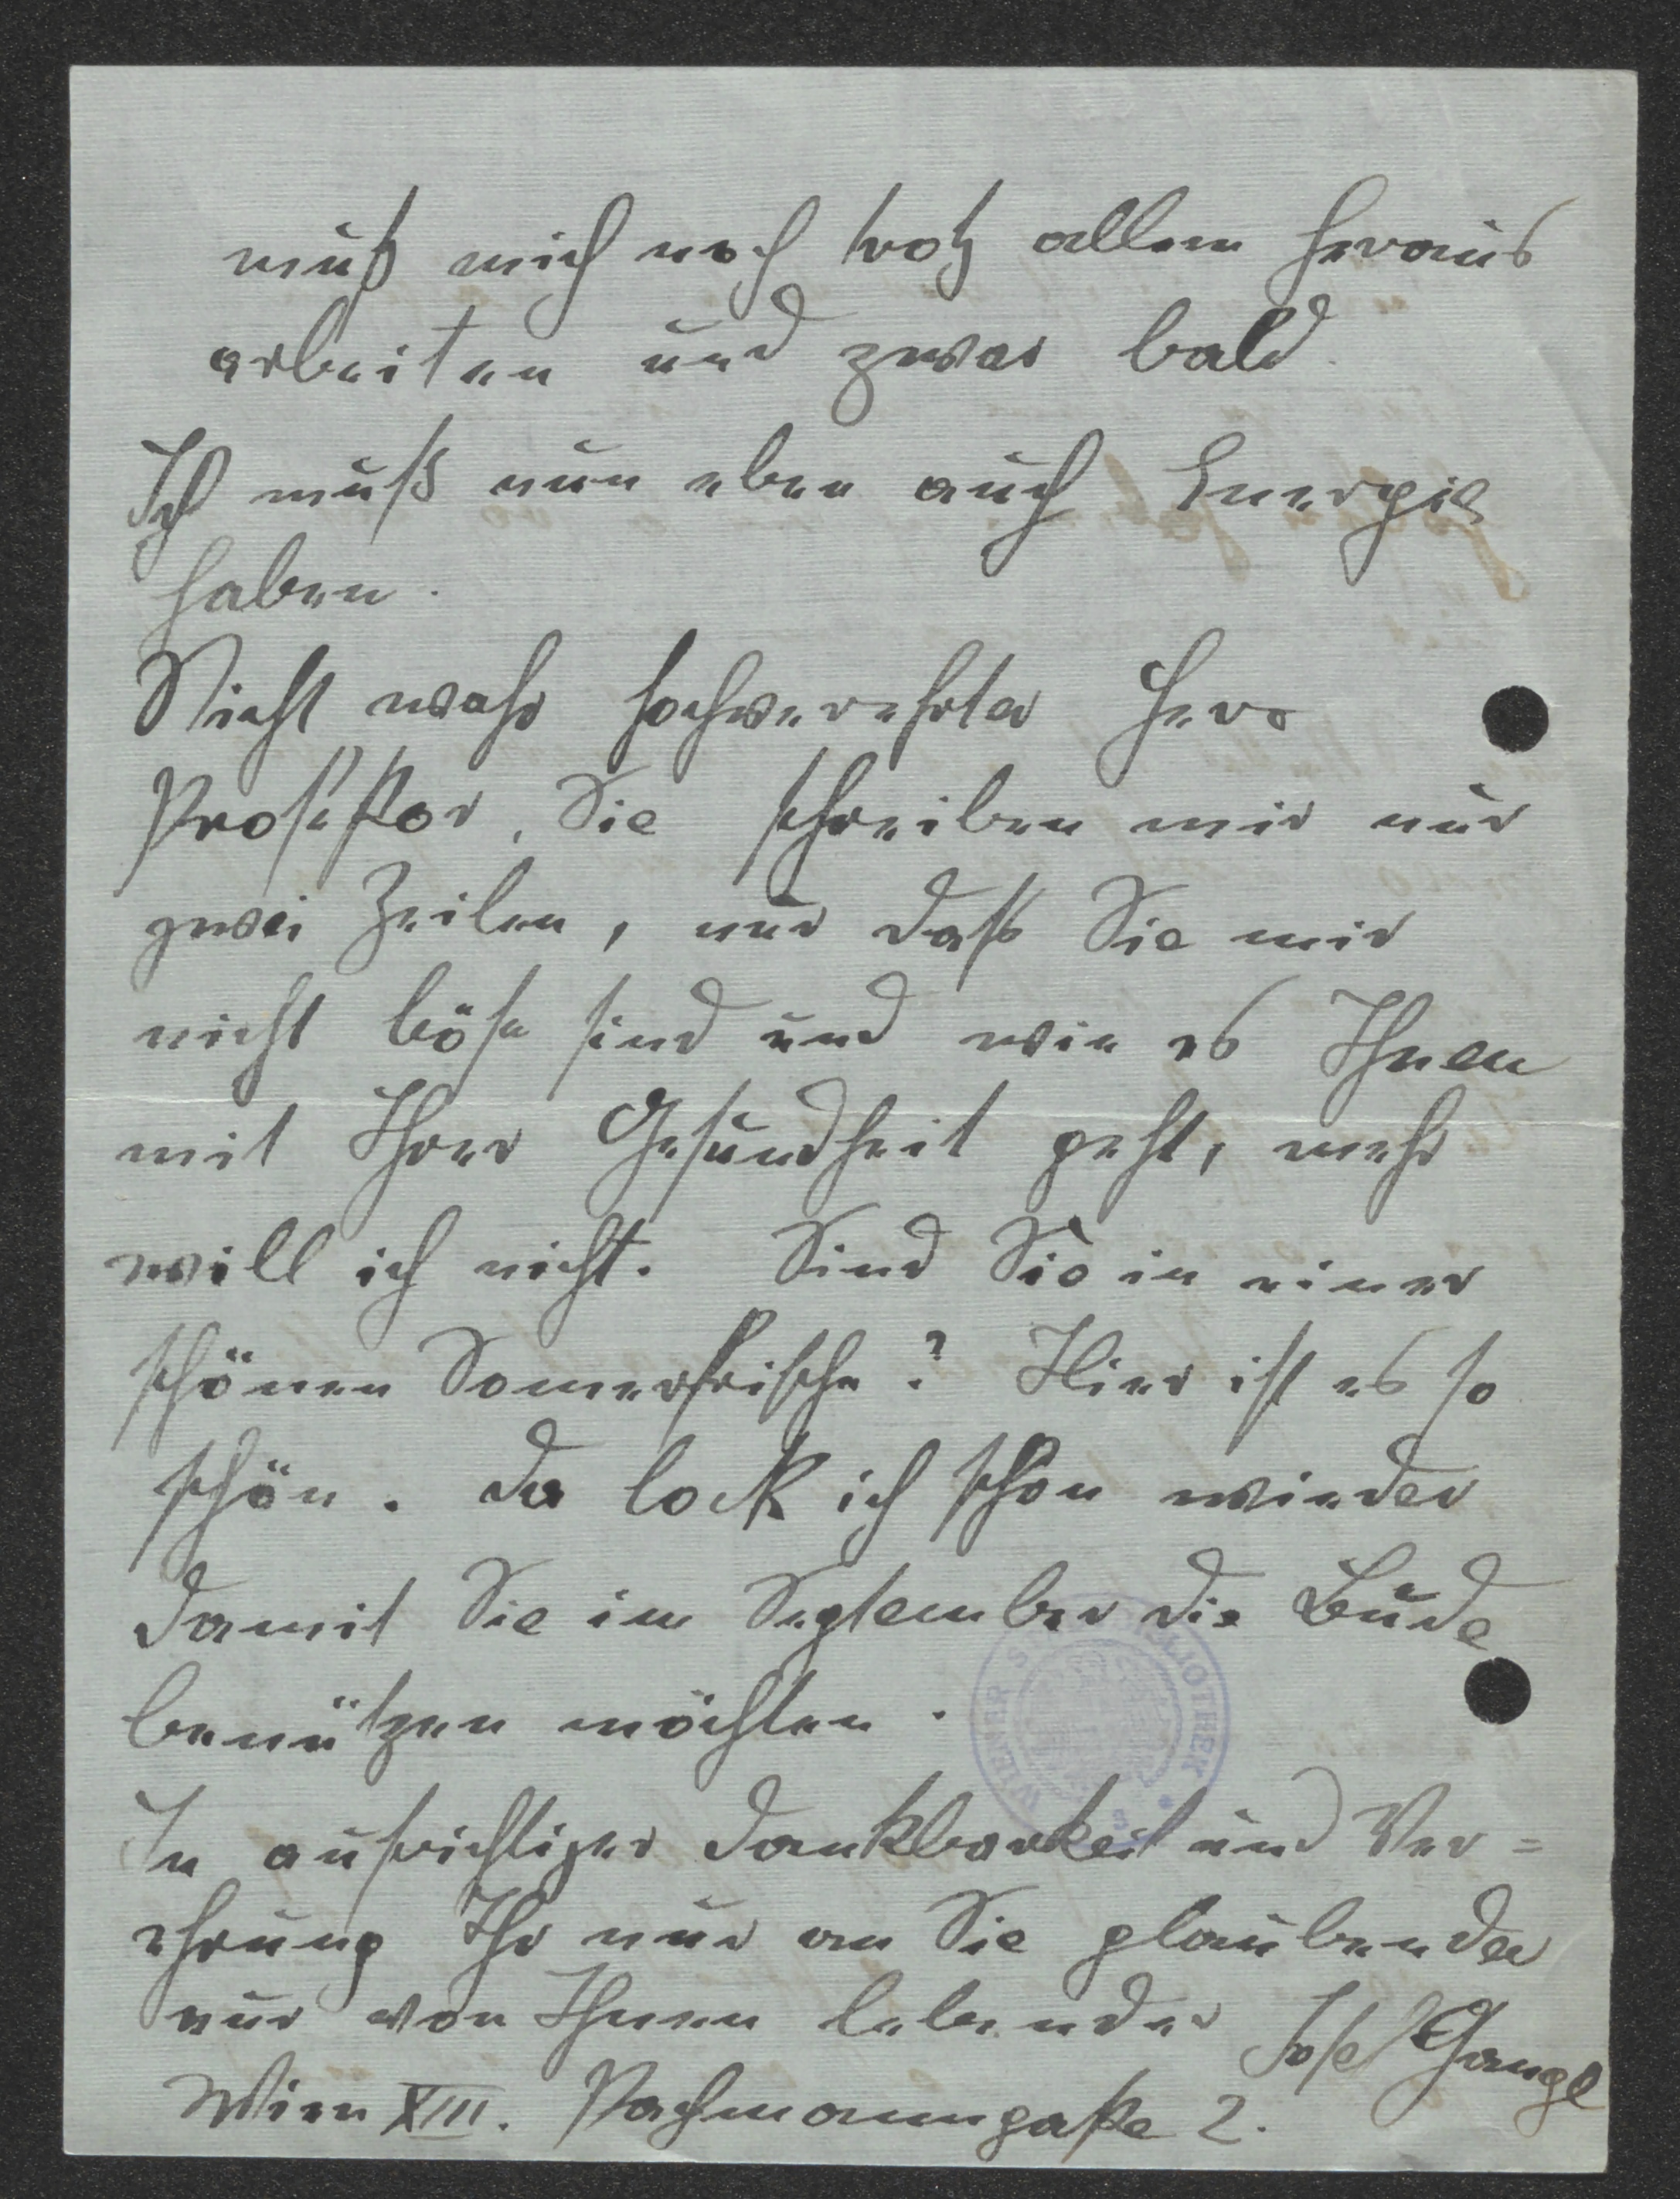 muß mich noch trotz allem heraus
arbeiten und zwar bald.
Ich muß nun eben auch Energie
haben.
Nicht wahr hochverehrter Herr
Profeßor, Sie schreiben mir nur
zwei Zeilen, nur daß Sie mir
nicht böse sind und wie es Ihnen
mit Ihrer Gesundheit geht, mehr
will ich nicht. Sind Sie in einer
schönen Somerfrische? Hier ist es so
schön. Da lock ich schon wieder
damit Sie im September die Bude
benützen möchten.
In aufrichtiger Dankbarkeit und Ver=
ehrung Ihr nur an Sie glaubender
nur von Ihnen lebender Josef Gangl
Wien XIII. Pachmanngaße 2.
WIENER BIBLIOTHEK